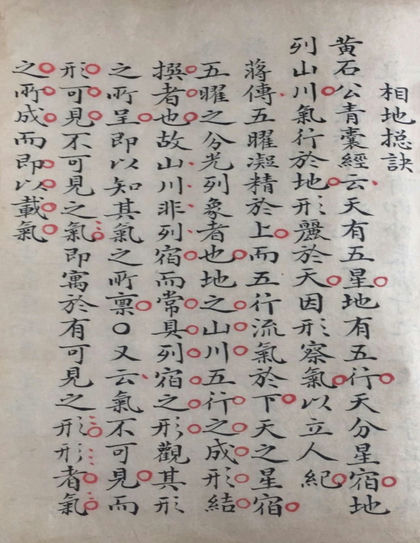 相地捴訣
黃石公青囊經云天有五星地有五行天分星宿地
列山川氣行於地形麗於天因形察氣以立人紀
蔣傳五曜凝精於上而五行流氣於下天之星宿
五曜之分光列象者也地之山川五行之成形結
撰者也故山川非列宿而常具列宿之形觀其形
之所呈即以知其氣之所禀〇又云氣不可見而
形可見不可見之氣即寓於有可見之形形者氣
之所成而即以載氣